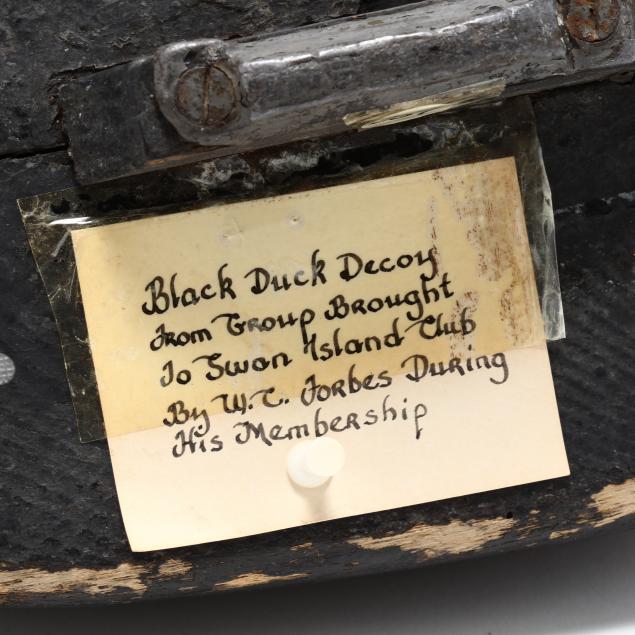 Black Duck Decoy
From Group Brought
To Swan Island Club
By W.C. Forbes During
His Membership